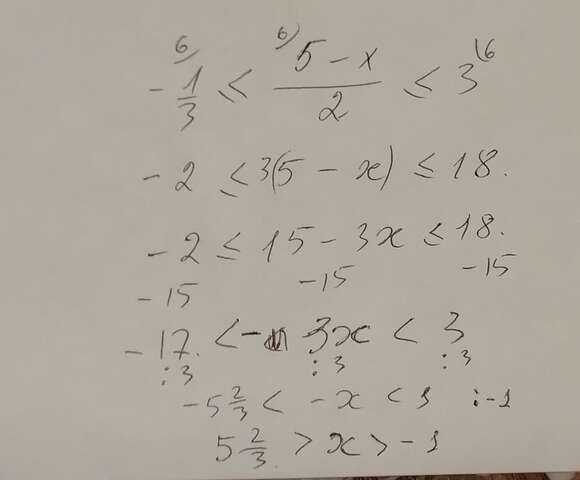 6) 6) \6
- 1/3 ≤ (5 - x)/2 ≤ 3
- 2 ≤ 3(5 - x) ≤ 18.
- 2 ≤ 15 - 3x ≤ 18.
- 15 - 15 - 15
- 17. < - 3x < 3
: 3 : 3 : 3
- 5 2/3 < - x < 1 : - 1
5 2/3. > x > - 1